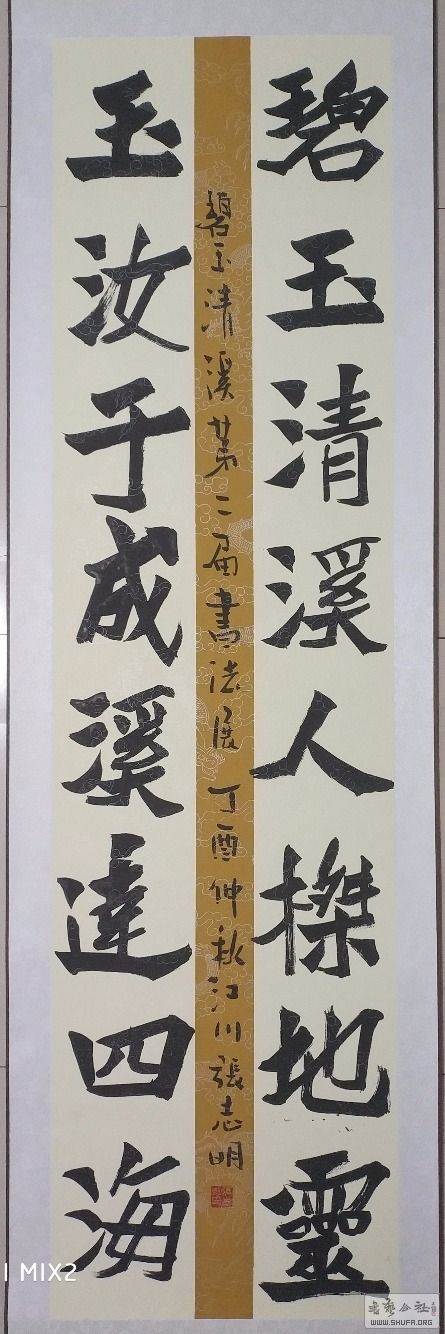 碧玉清溪人榤地靈
玉汝于成溪達四海
碧玉清溪第二届書法展 丁酉仲秋江川張志明
MIX2
WWW.SHUFA.ORG